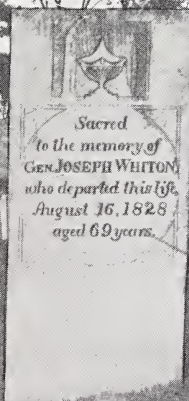 Sacred
to the memory of
GEN. JOSEPH WHITON,
who departed this life,
August 16, 1828
aged 69 years.